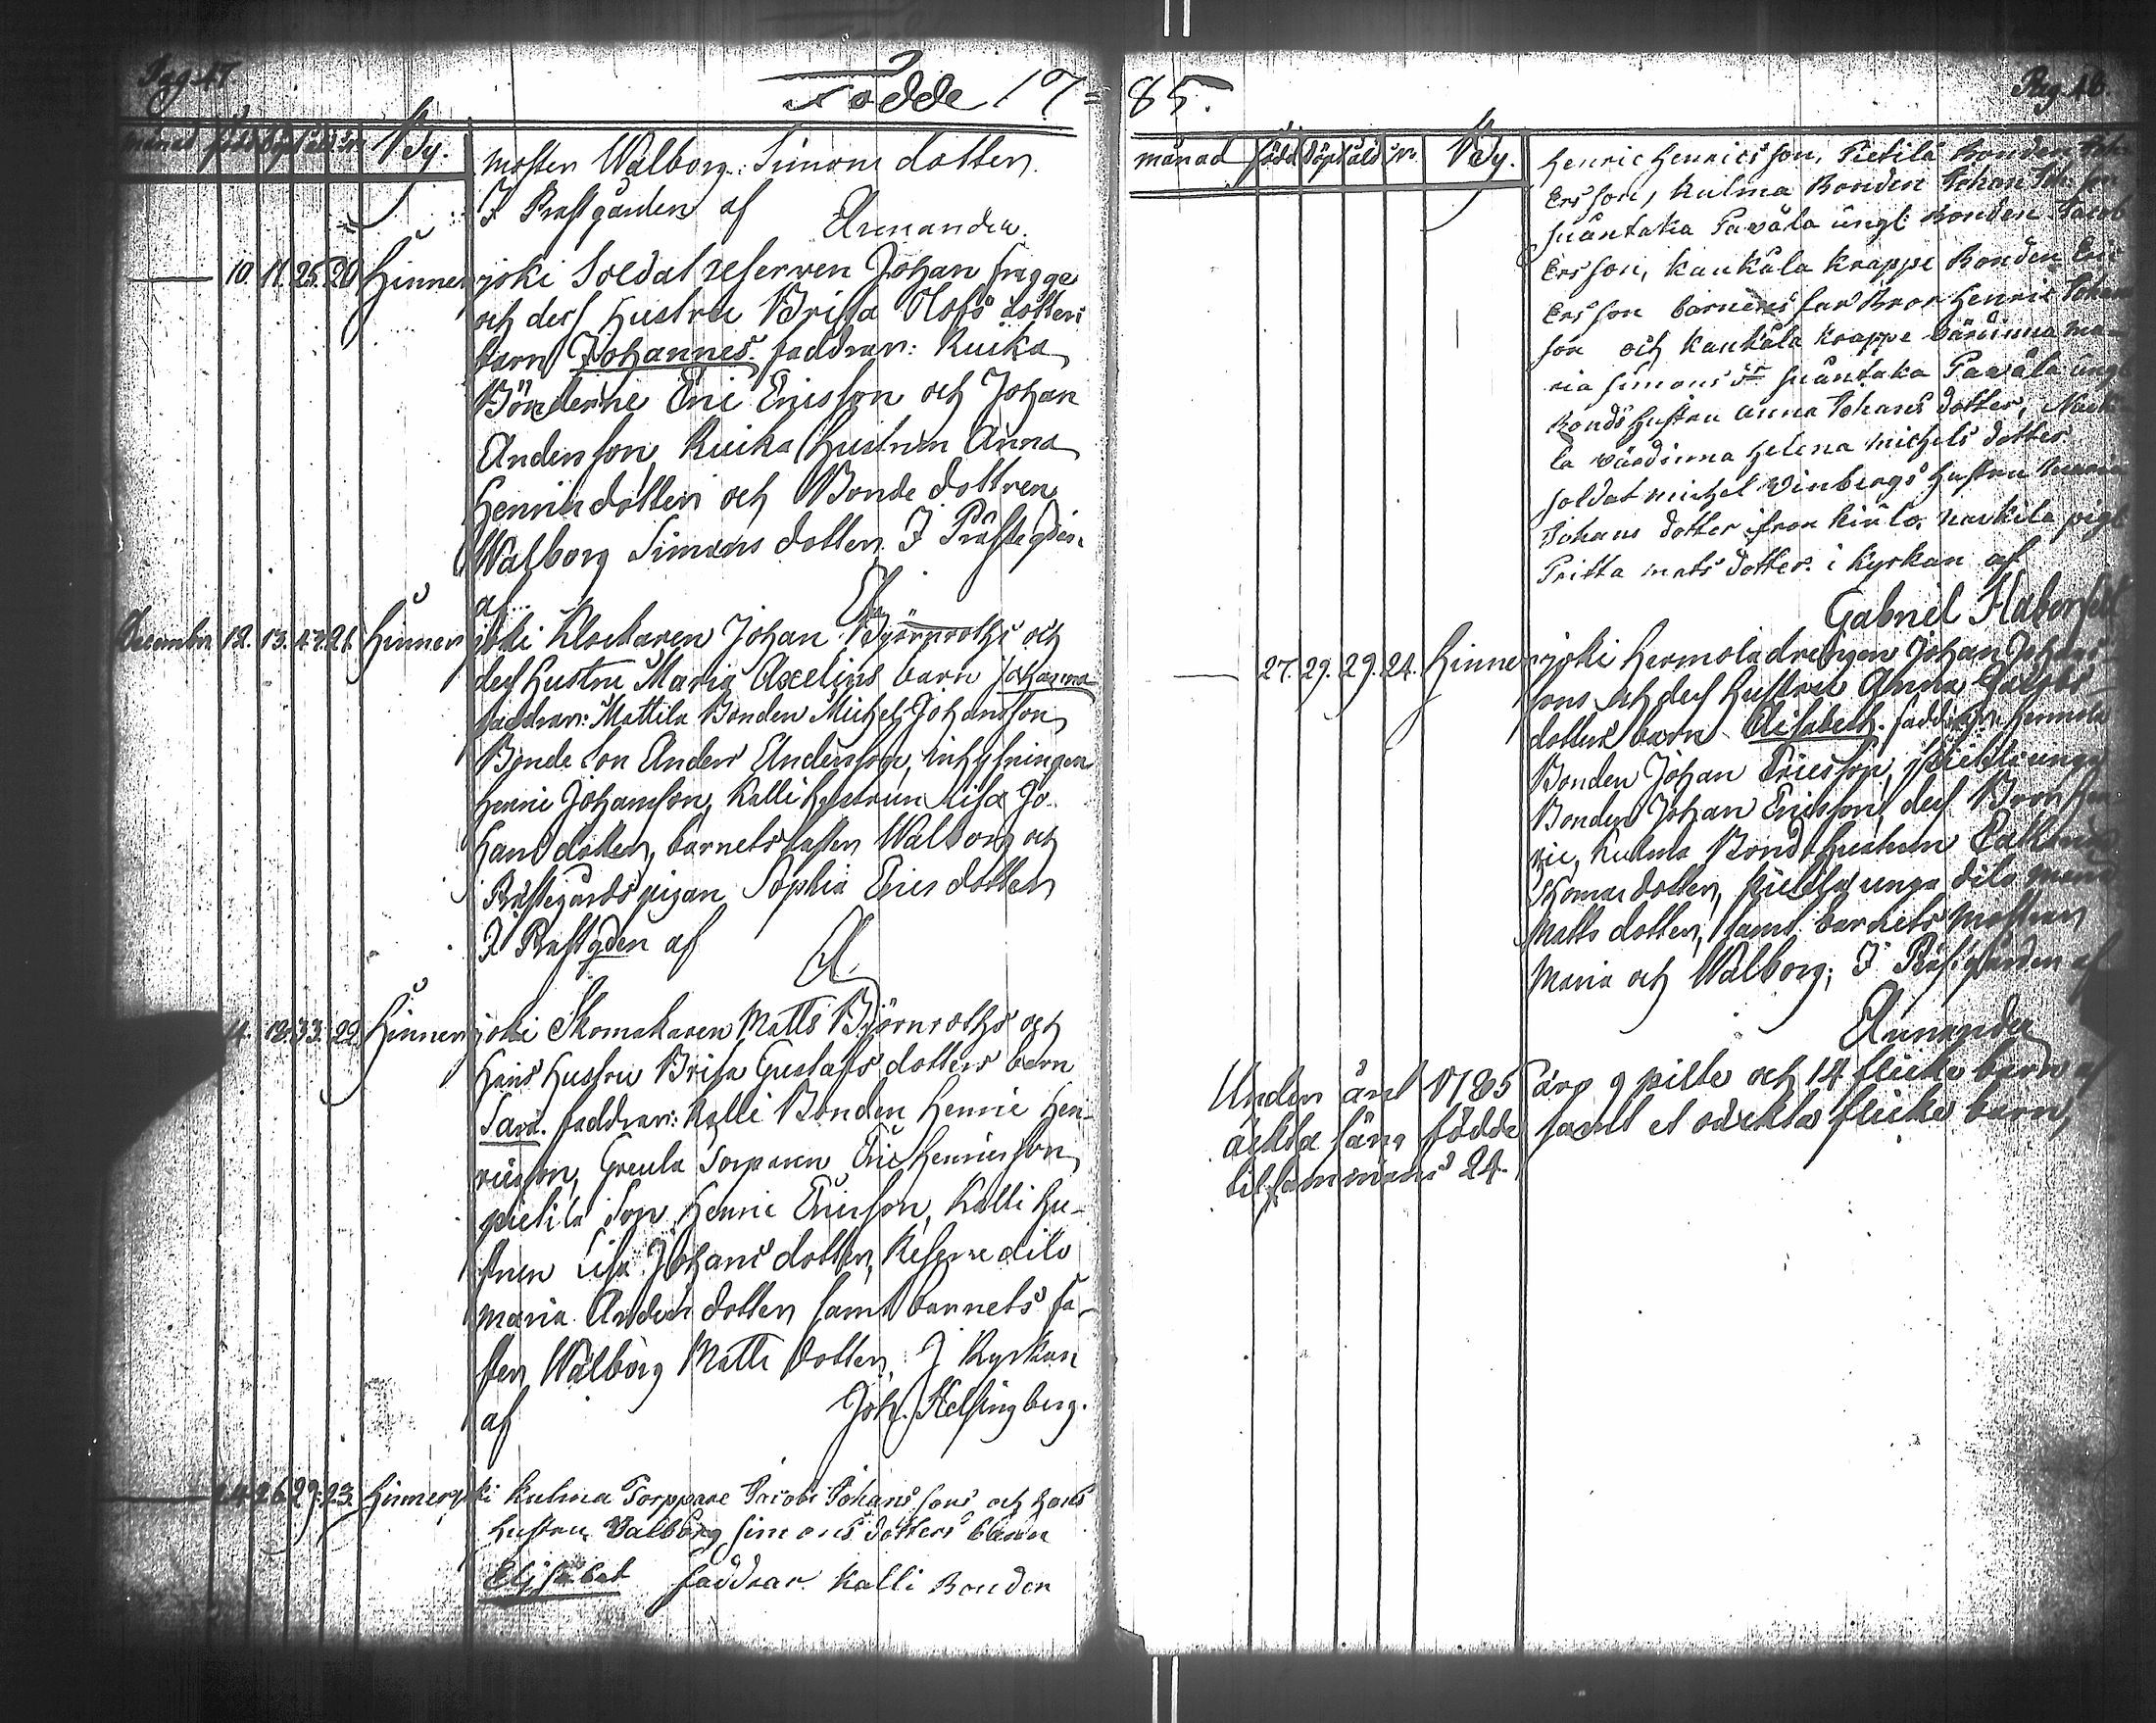 Pag. 47
Födde 17=
månad född döpt åld. nr. By.
moster Walborg Simons dotter.
I Prästgården af
Armander.
10. 11. 25. 20. Hinnerjoki Soldat reserven Johan frygge
och dess Hustru Brita Olofs dotters
barn Johannes. faddrar: Kuika
Bönderne Eric Ericsson och Johan
Andersson, Kuika Hustrun Anna
Henricsdotter och Bonde dottren
Walborg Simons dotter. I Prästegår:
af A
December 12. 13. 43. 21. Hinnerjoki Klockaren Johan Björnroths och
dess Hustru Maria Axelins barn Johanna
faddrar: Mattila Bonden Michel Johansson
Bonde Son Anders Andersson, inhysningen
Henric Johansson, Kalli hustrun Lisa Jo-
hans dotter, barnets faster Walborg och
Prästegårdspigan Sophia Erics dotter
I Prästgden af A
4. 18. 33. 22. Hinnerjoki Skomakaren Matts Björnroths och
Hans Hustru Brita Gustafs dotters barn
Sara. faddrar: Kalli Bonden Henric Hen-
ricsson, Torparen Eric Henricsson
pietilä Son Henric Ericsson, Kalli hu-
strun Lisa Johans dotter, dito
Maria Anders dotter samt barnets fa-
ster Walborg Matts dotter. I Kyrkan
af Joh. Helsingberg.
24. 26. 29. 23. Hinnerjoki Kulma Torppare Jacobs Johans sons och hans
hustru Walborg simons dotters barn
Elisabet faddrar. Kalli Bonden
85.
Pag. 48
månad född döpt åld nr. By.
Henric Henricsson, Pietilä Bonden
Ersson, Kulma Bonden Johan
suäntaka Pavåla ungl: Bonden Jacob
Ersson, Kaukåla krappe Bonden Eric
Ersson barnens farBror Henric Johan
son och Kaukåla krappe wärdinna ma-
ria simons suäntaka Pavåla ungl
Bonds hustru anna Johans dotter,
la värdinna Helena Michels dotter
soldat michel Winbergs hustru
Johans dotter ifrån kiulo,
Pritta mats dotter. i Kyrkan af
Gabriel Haberfelt
27. 29. 29. 24. Hinnerjoki Hermola drengen Johan Johans
sons och dess Hustru Anna
dotters barn Elisabeth. faddrar: Hermola
Bonden Johan Ericsson, unga
Bonden Johan Ericsson, dess Bror Hen-
ric, Kulma Bond Hustrun
Thomas dotter, unga dito
Matts dotter, samt barnets mostrar
Maria och Walborg; I Präst gården af
Armander
Under året 1785 äro 9 pilte och 14 flicke barn af
äckta säng födde samt et oäckta flicke barn,
tilsammans 24.